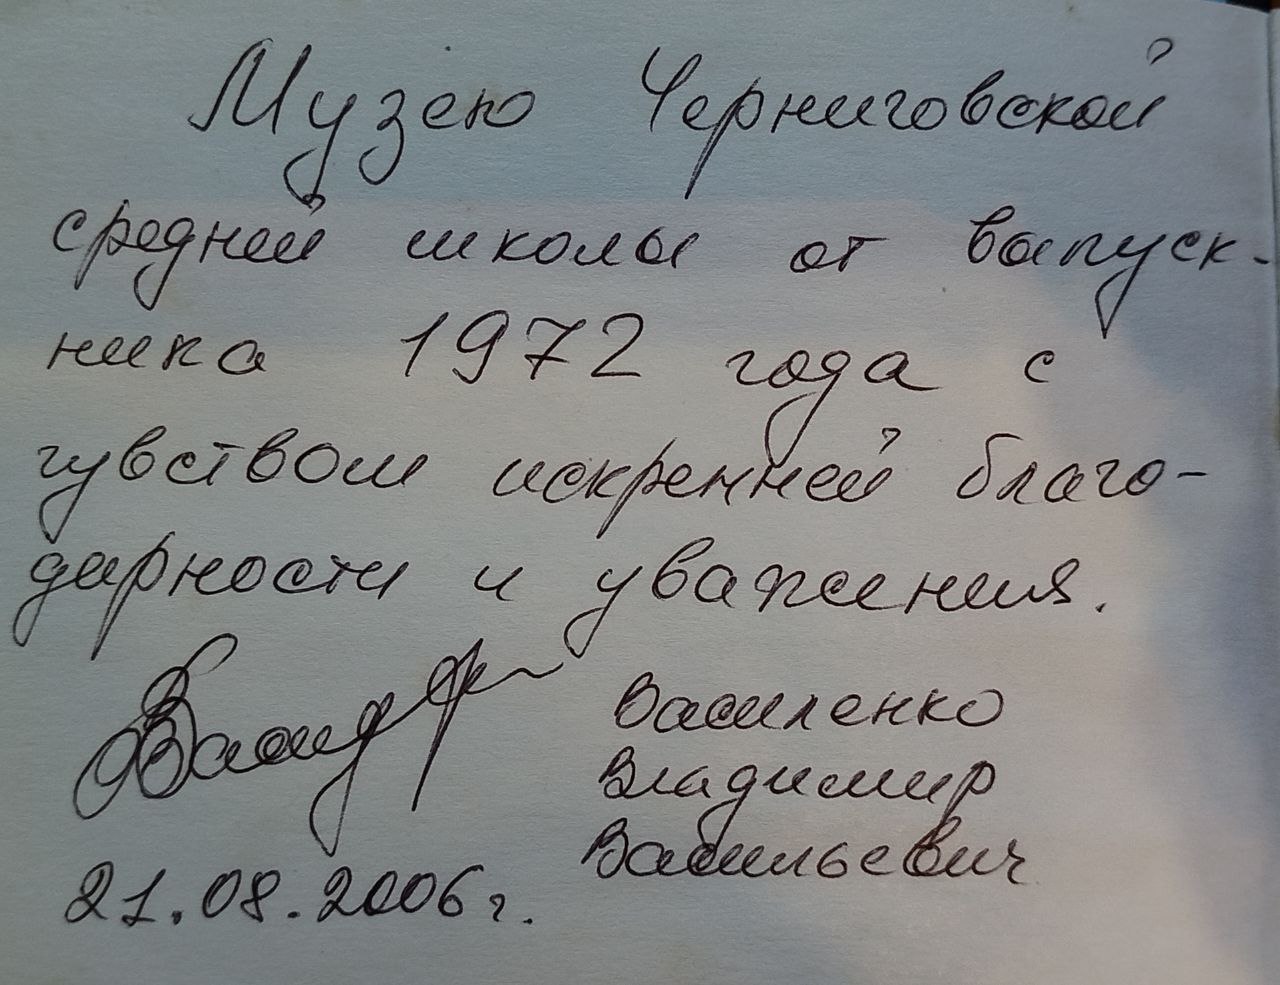 Музею Черниговской
средней школы от выпуск-
ника 1972 года с
чувством искренней благо-
дарности и уважения.
Василенко
Владимир
Васильевич
21.08.2006г.